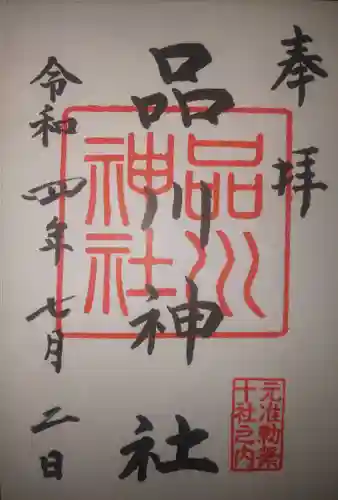 奉拝
品川神社
令和四年七月二日
品川
神社
元准勅祭
十社之内